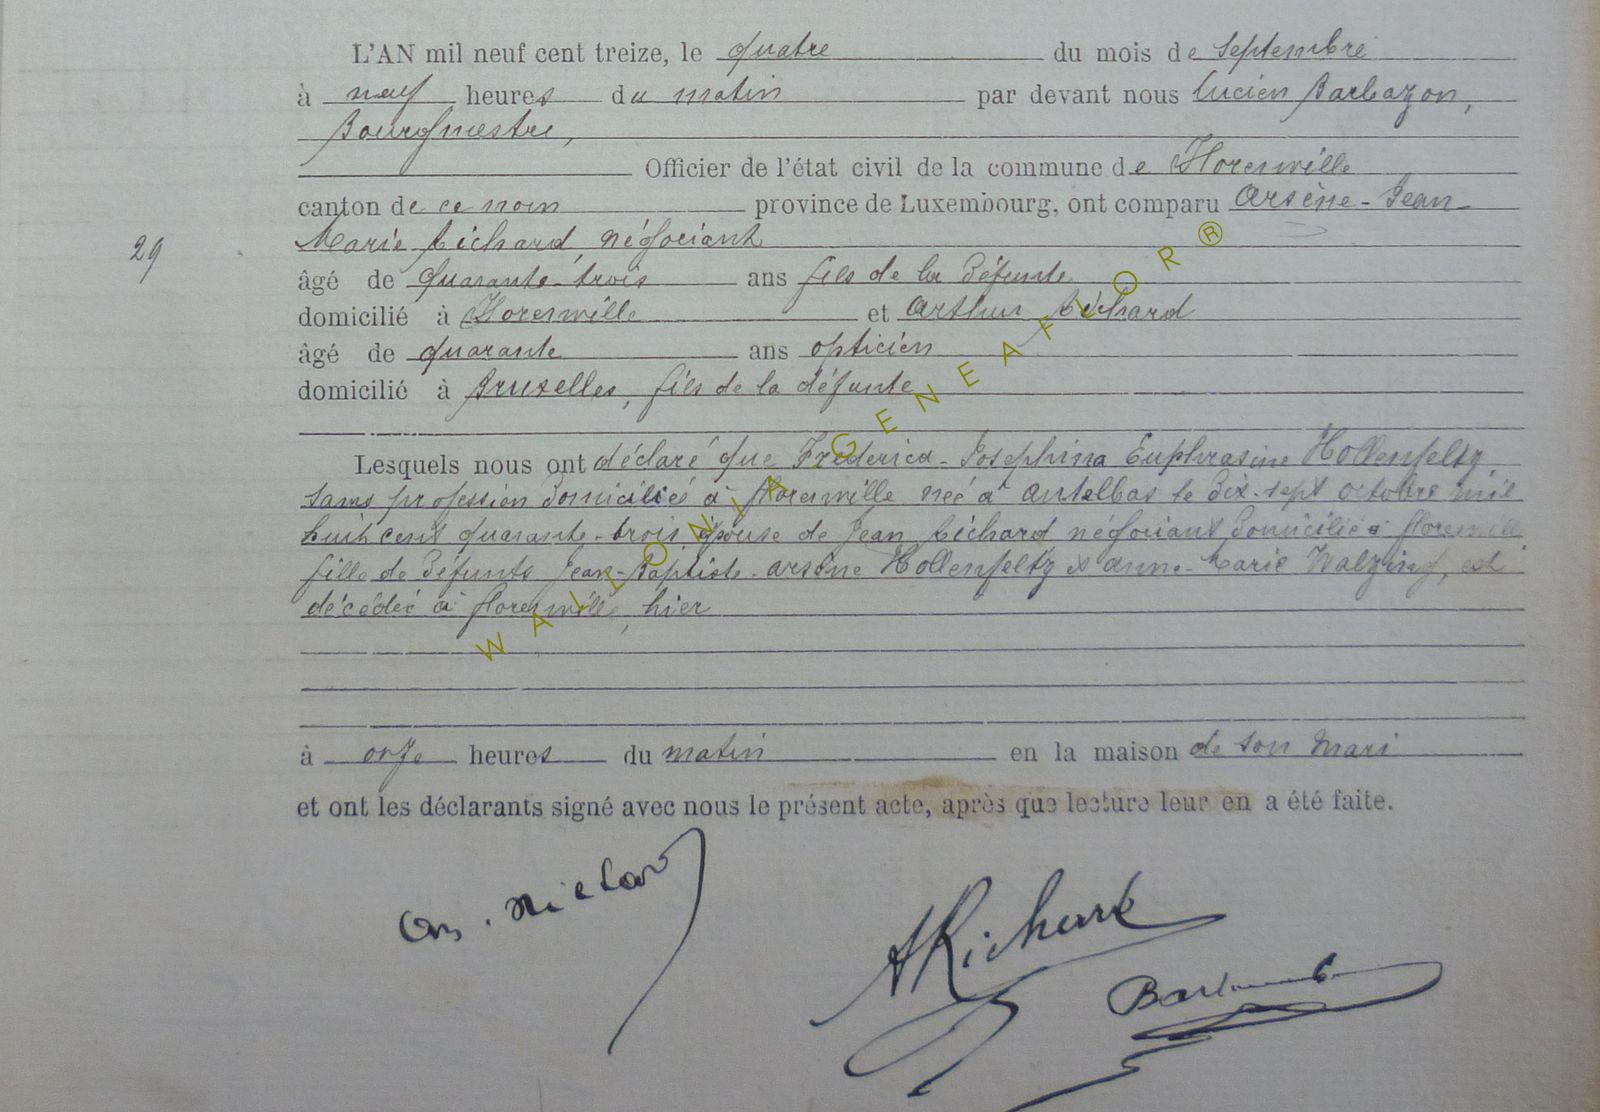 L'AN mil neuf cent treize, le quatre du mois de septembre
à neuf heures du matin par devant nous Lucien Barbazon,
Bourgmestre,
Officier de l'état civil de la commune de Florenville
canton de ce nom province de Luxembourg, ont comparu Arsène-Jean
29
Marie Richard, négociant
âgé de quarante-trois ans fils de la défunte
domicilié à Florenville et Arthur Richard
âgé de quarante ans opticien
domicilié à Bruxelles, fils de la défunte
Lesquels nous ont déclaré que Frédérica-Josephina Euphrasine Hollenfeltz,
sans profession domiciliée à Florenville née à Autelbas le dix-sept octobre mil
huit cent quarante-trois épouse de Jean Richard négociant domicilié à Florenville
fille de défunts Jean-Baptiste-Arsène Hollenfeltz & Anne-Marie Walzing, est
décédée à Florenville, hier
à onze heures du matin en la maison de son mari
et ont les déclarants signé avec nous le présent acte, après que lecture leur en a été faite.
Ars. Richard
ARichard
WALLONIA GENEAFLOR ®